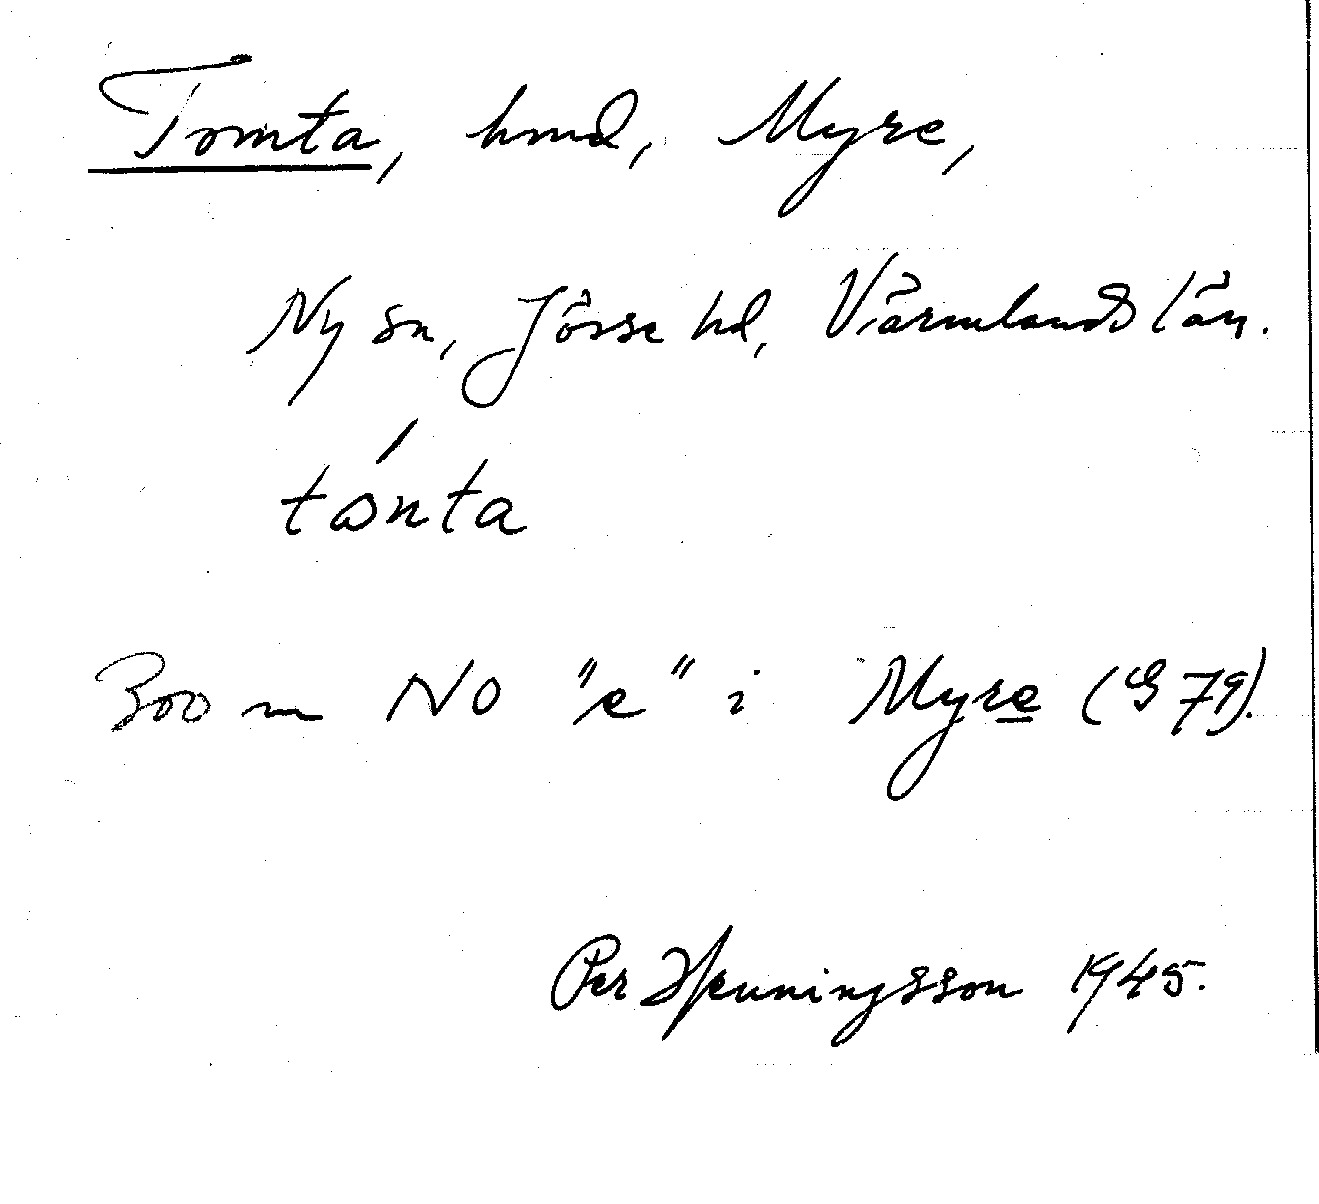 Tomta, hmd, Myre,
Ny sn, Jösse hd, Värmlands län.
tónta
300 m NO "e" i Myre (G 79).
Per Henningsson 1945.